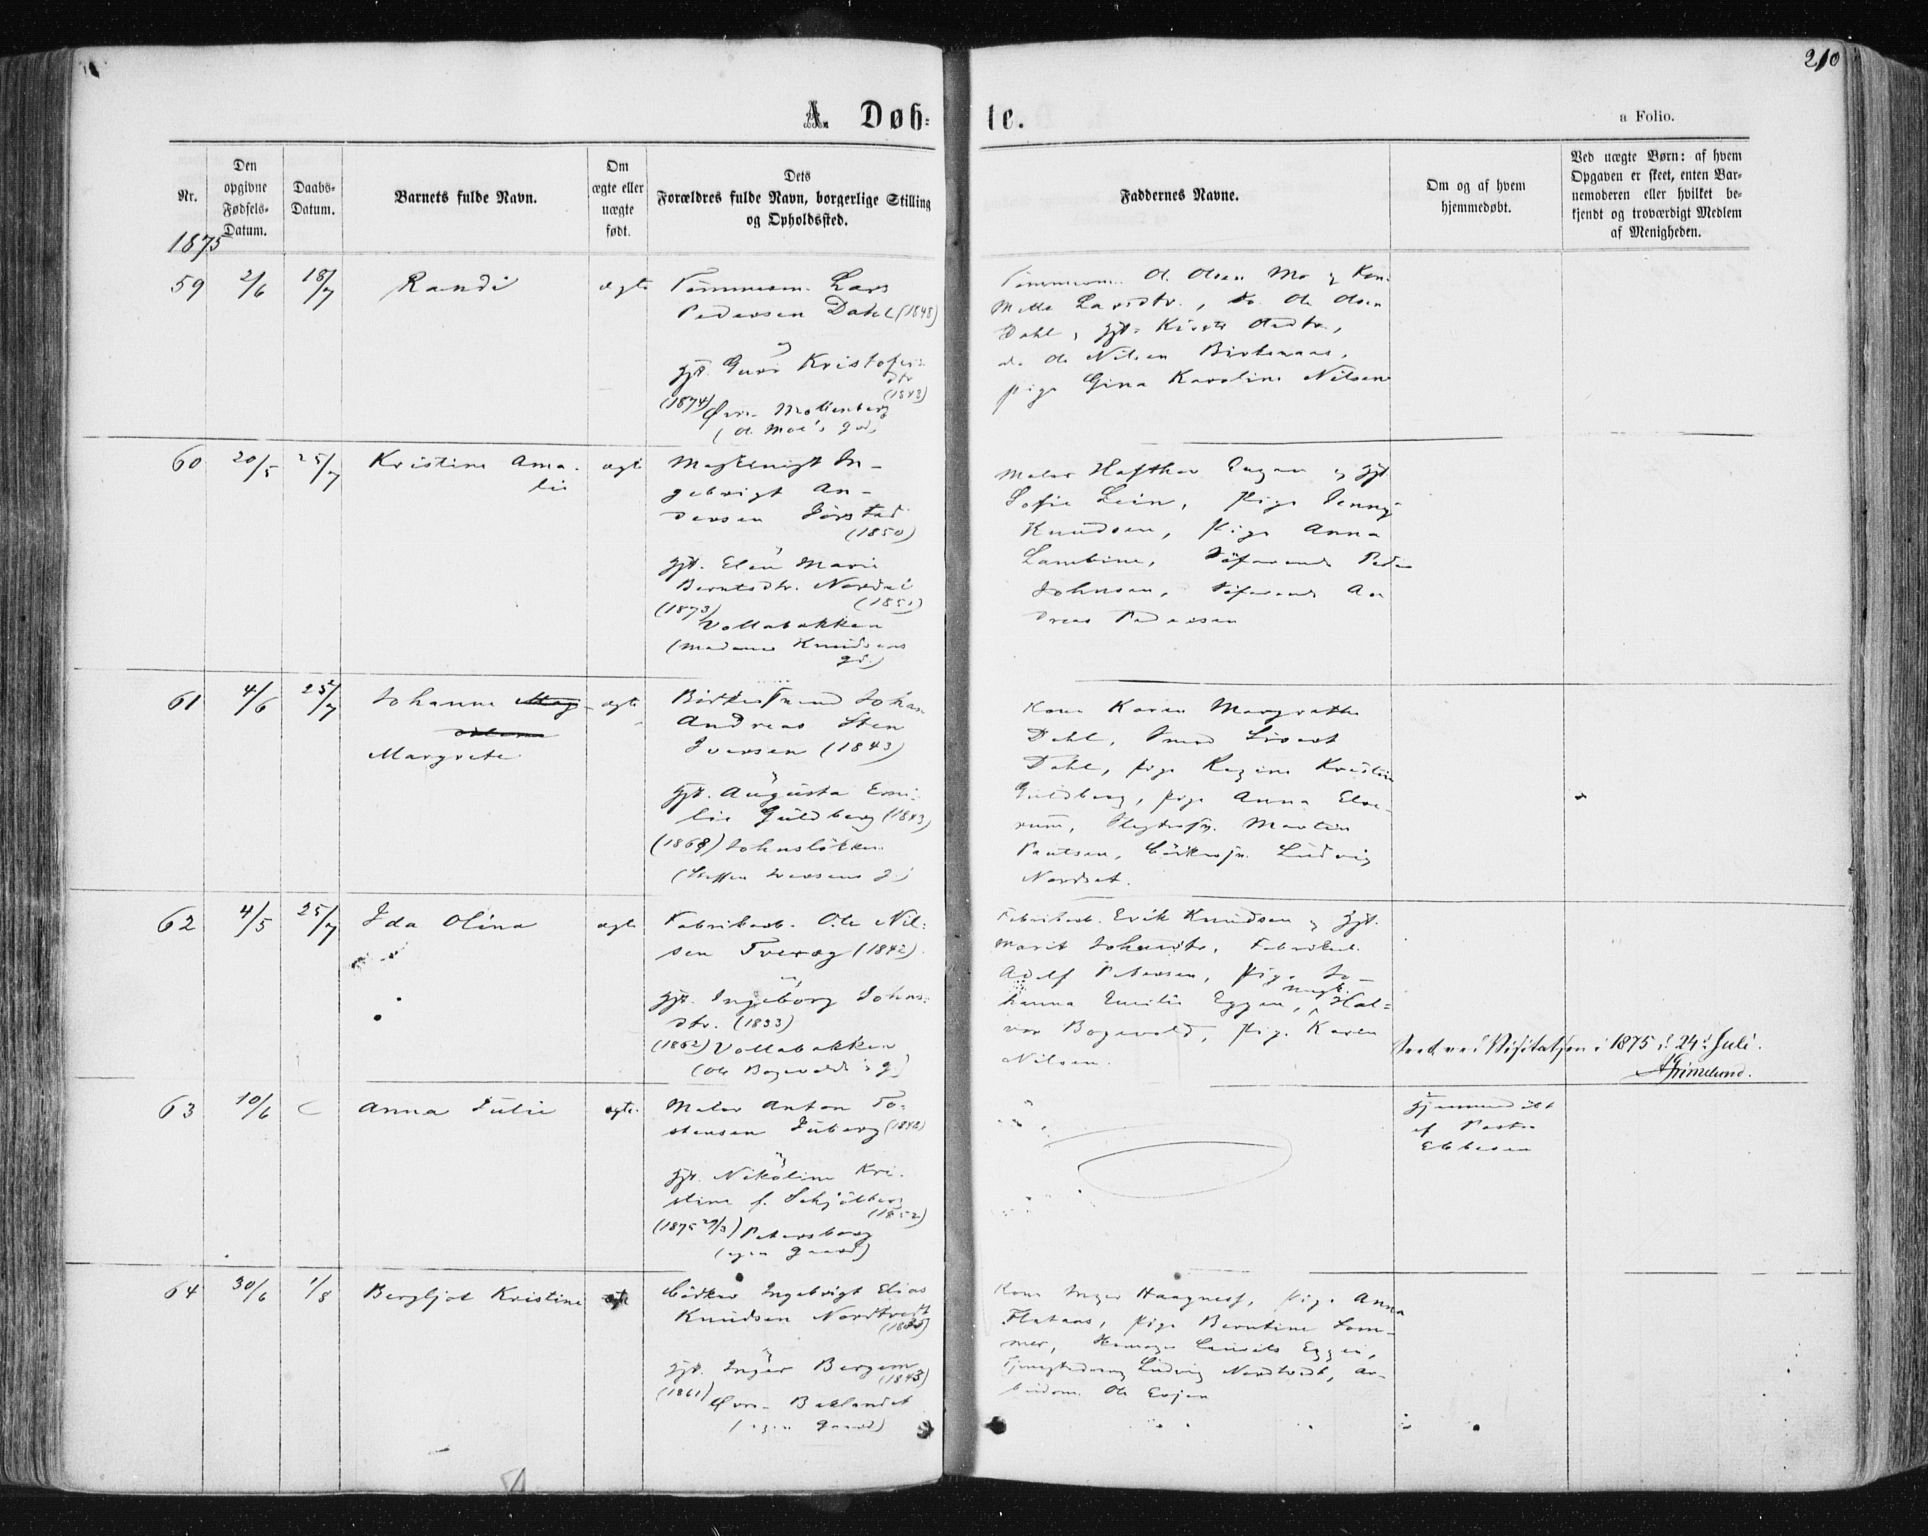 210
A. Døb= te.
a Folio.
Nr.
Den opgivne Fødsels-Datum.
Daabs-Datum.
Barnets fulde Navn.
Om ægte eller uægte født.
Dets Forældres fulde Navn, borgerlige Stilling og Opholdssted.
Faddernes Navne.
Om og af hvem hjemmedøbt.
Ved uægte Børn: af hvem Opgaven er skeet, enten Barnemoderen eller hvilket bekjendt og troværdigt Medlem af Menigheden.
1875
59 2/6 18/7 Randi ægte
Tømmerm. Lars
Pedersen Dahl (1848)
gft. Guri Kristofers-
dtr
(1843)
(1874) Øvre Mollenberg
(O. Moe's gd)
Ol. Olsen Mo og Kon.
Mette Larsdtr., Ole Olsen
Dahl,
Nilsen
pige Gina Karoline Nilsen
60 20/5 25/7 Kristine Ama-
lie
ægte
In-
gebrigt An-
dersen Jørstad
(1850)
gft. Elen Marie
Berntsdtr. Nordal
(1873) (1851)
Vollabakken
(Madame Knudsens
gd.)
Maler og gft
Sofie Lein, Pige Jenny
Knudsen, Pige Anna
Lambine, Søfarende Peder
Johnsen, Søfarende An-
dreas Pedersen
61 4/6 25/7 Johanna Mag-
dalena
Margrete
ægte
Johan
Andreas Sten
Iversen (1843)
gft. Augusta Emi-
lie Guldberg (1843)
(1868) Johnsløkken
(Steffen Iversens g.)
Kone Karen Margrethe
Dahl, Smed Sivert
Dahl, pige Regine Kristine
Guldberg, pige Anna Elve-
rum, Martin
Pantsen, Ludvig
Nordset.
62 4/5 25/7 Ida Olina ægte
Fabrikarb. Ole Nil-
sen Tveræg (1842)
gft. Ingeborg Johns-
dtr. (1833)
(1862) Vollabakken
(Ole Bogevolds g)
Fabrikarb. Erik Knudsen og gft.
Marit Johnsdtr, Fabrikarb.
Adolf Petersen, pige Jo-
hanna Emilie Eggen, Hal-
vor Bogevold, pige Karen
Nilsen.
Visitatsen i 1875 d. 24de Juli.
AGrimelund.
63 10/6 Anna Julie ægte
Maler Anton To-
stensen Juberg (1842)
gft. Nikoline Kri-
stine f. Schjølberg
(1852)
(1875 29/3) Petersborg
(egen gaard)
Hjemmedøbt
af Pastor
Ebbesen
64 30/6 1/8 Bergljot Kristine ægte
Bødker Ingebrigt Elias
Knudsen Nordtvedt
gft. Inger Bergem
(1843)
(1861) Øvre Baklandet
(egen gaard)
Kone Inger Haagness, Pige Anna
Flataas, Pige Berntine Som-
mer, Eggen,
Ludvig Nordtvedt, Ar-
beidsm. Ole Evjen